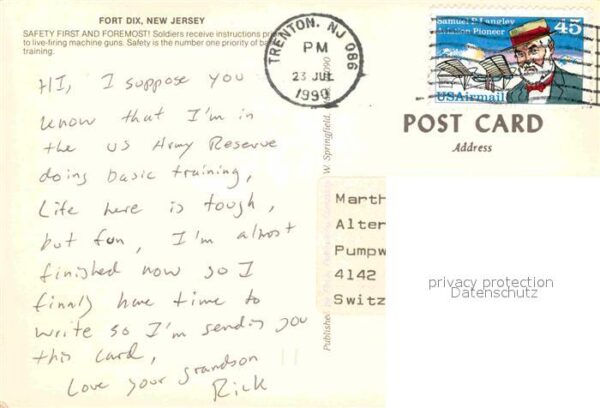 FORT DIX, NEW JERSEY
SAFETY FIRST AND FOREMOST! Soldiers receive instructions
to live-firing machine guns. Safety is the number one priority of
training.
HI, I suppose you
know that I'm in
the US Army Reserve
doing basic training,
Life here is tough,
but fun, I'm almost
finished now so I
finally have time to
write so I'm sending you
this card,
Love your grandson
Rick
TRENTON, NJ 086
PM
23 JUL
1990
Samuel P. Langley
Aviation Pioneer
45
USAirmail
POST CARD
Address
Published by
W. Springfield,
Marth
Alter
Pumpw
4142
Switz
privacy protection
Datenschutz